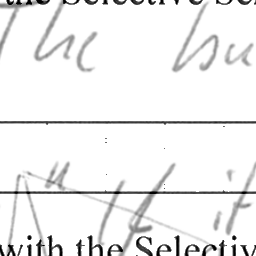 the Selective Se
The bu
" If it
with the Selectiv